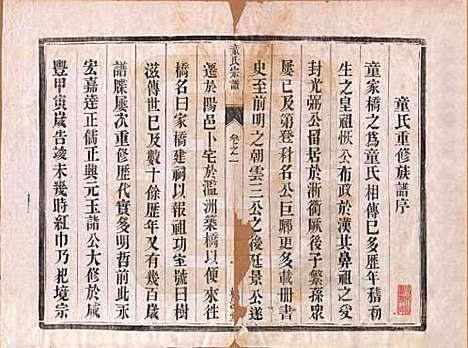 童氏重修族譜序
童家橋之為童氏相傳巳多歷年稽初
生之皇祖恢公布政於漢其鼻祖之
封光弼公留居於浙衢厥後子繁孫眾
屢巳及第登科名公巨卿更多載册書
史至前明之朝雲三公之後廷景公遂
童氏宗譜
卷之一
遷於陽邑卜宅於濫洲築橋以便往
橋名曰家橋建祠以報祖功室號曰樹
滋傳世巳及數十餘歷年又有幾百歲
譜牒屢次重修歷代實多明哲前此永
宏嘉達正儒正興元玉諸公大修於咸
豐甲寅歲告竣未幾時紅巾乃犯境宗